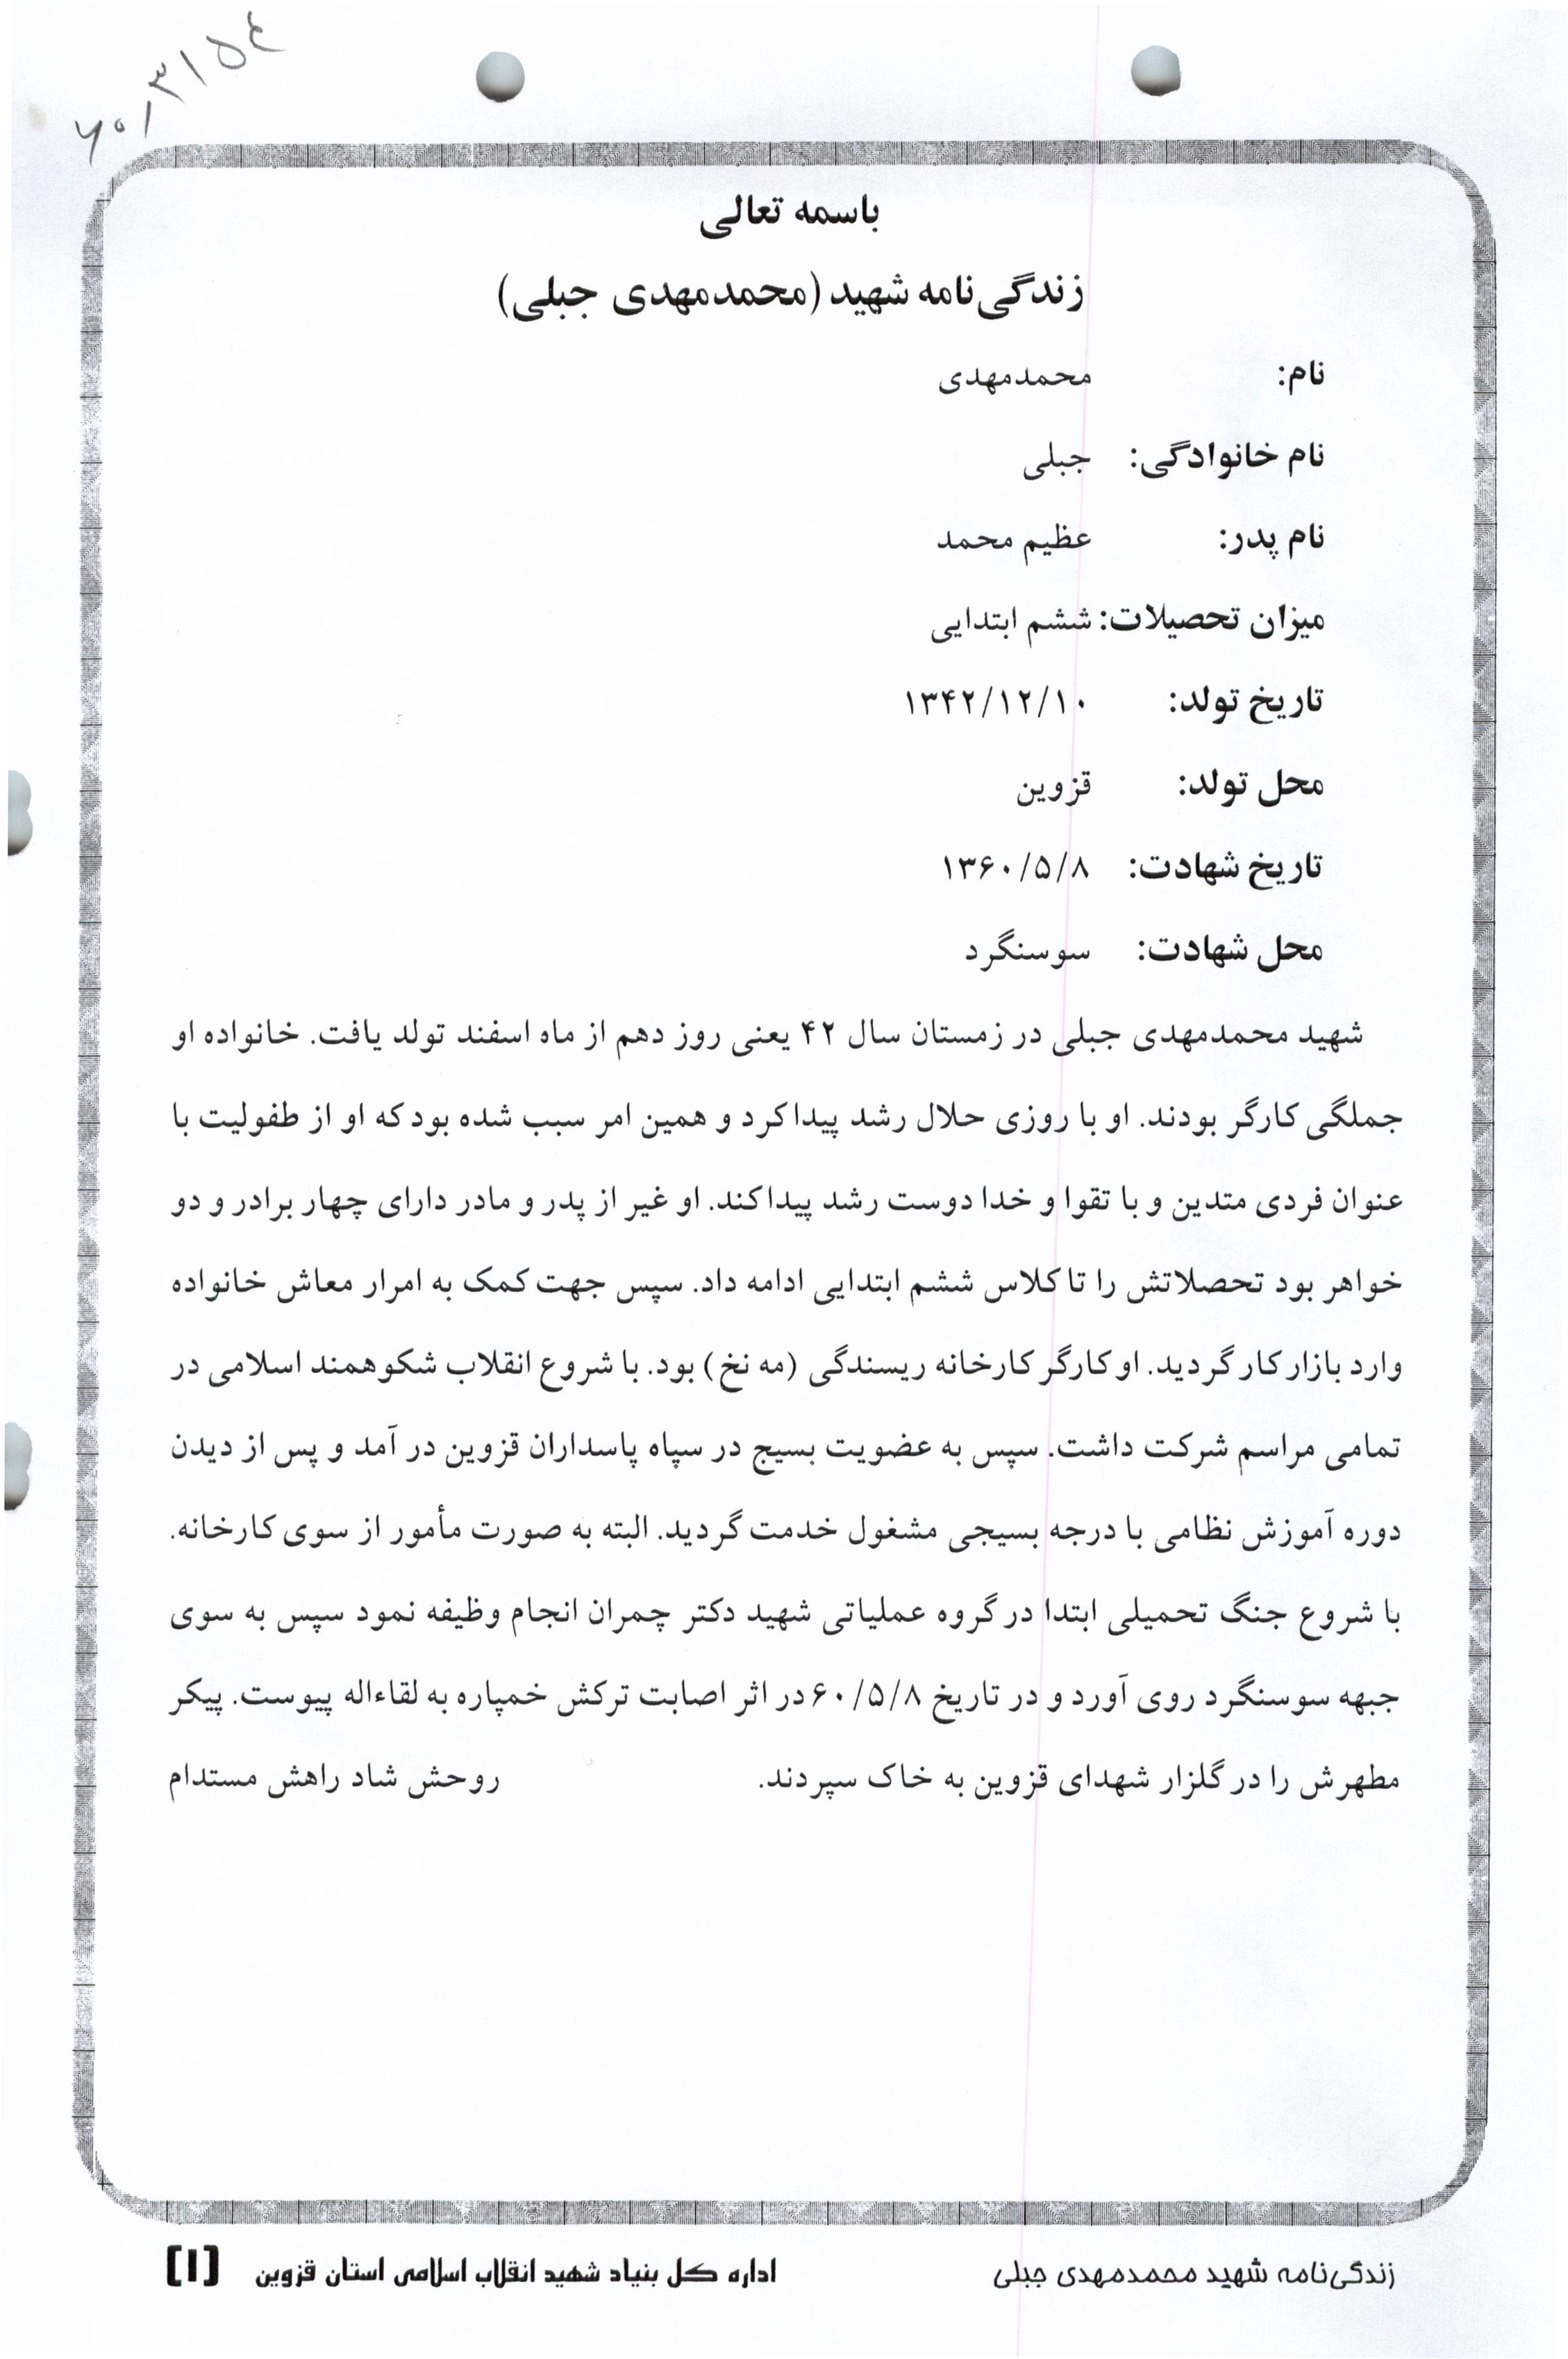 باسمه تعالی
زندگی‌نامه شهید (محمدمهدی جبلی)
نام: محمدمهدی
نام خانوادگی: جبلی
نام پدر: عظیم محمد
میزان تحصیلات: ششم ابتدایی
تاریخ تولد: ۱۳۴۲/۱۲/۱۰
محل تولد: قزوین
تاریخ شهادت: ۱۳۶۰/۵/۸
محل شهادت: سوسنگرد
شهید محمدمهدی جبلی در زمستان سال ۴۲ یعنی روز دهم از ماه اسفند تولد یافت. خانواده او
جملگی کارگر بودند. او با روزی حلال رشد پیدا کرد و همین امر سبب شده بود که او از طفولیت با
عنوان فردی متدین و با تقوا و خدا دوست رشد پیدا کند. او غیر از پدر و مادر دارای چهار برادر و دو
خواهر بود تحصلاتش را تا کلاس ششم ابتدایی ادامه داد. سپس جهت کمک به امرار معاش خانواده
وارد بازار کار گردید. او کارگر کارخانه ریسندگی (مه نخ) بود. با شروع انقلاب شکوهمند اسلامی در
تمامی مراسم شرکت داشت. سپس به عضویت بسیج در سپاه پاسداران قزوین در آمد و پس از دیدن
دوره آموزش نظامی با درجه بسیجی مشغول خدمت گردید. البته به صورت مأمور از سوی کارخانه.
با شروع جنگ تحمیلی ابتدا در گروه عملیاتی شهید دکتر چمران انجام وظیفه نمود سپس به سوی
جبهه سوسنگرد روی آورد و در تاریخ ۶۰/۵/۸ در اثر اصابت ترکش خمپاره به لقاءاله پیوست. پیکر
مطهرش را در گلزار شهدای قزوین به خاک سپردند. روحش شاد راهش مستدام
زندگی‌نامه شهید محمدمهدی جبلی اداره کل بنیاد شهید انقلاب اسلامی استان قزوین [۱]